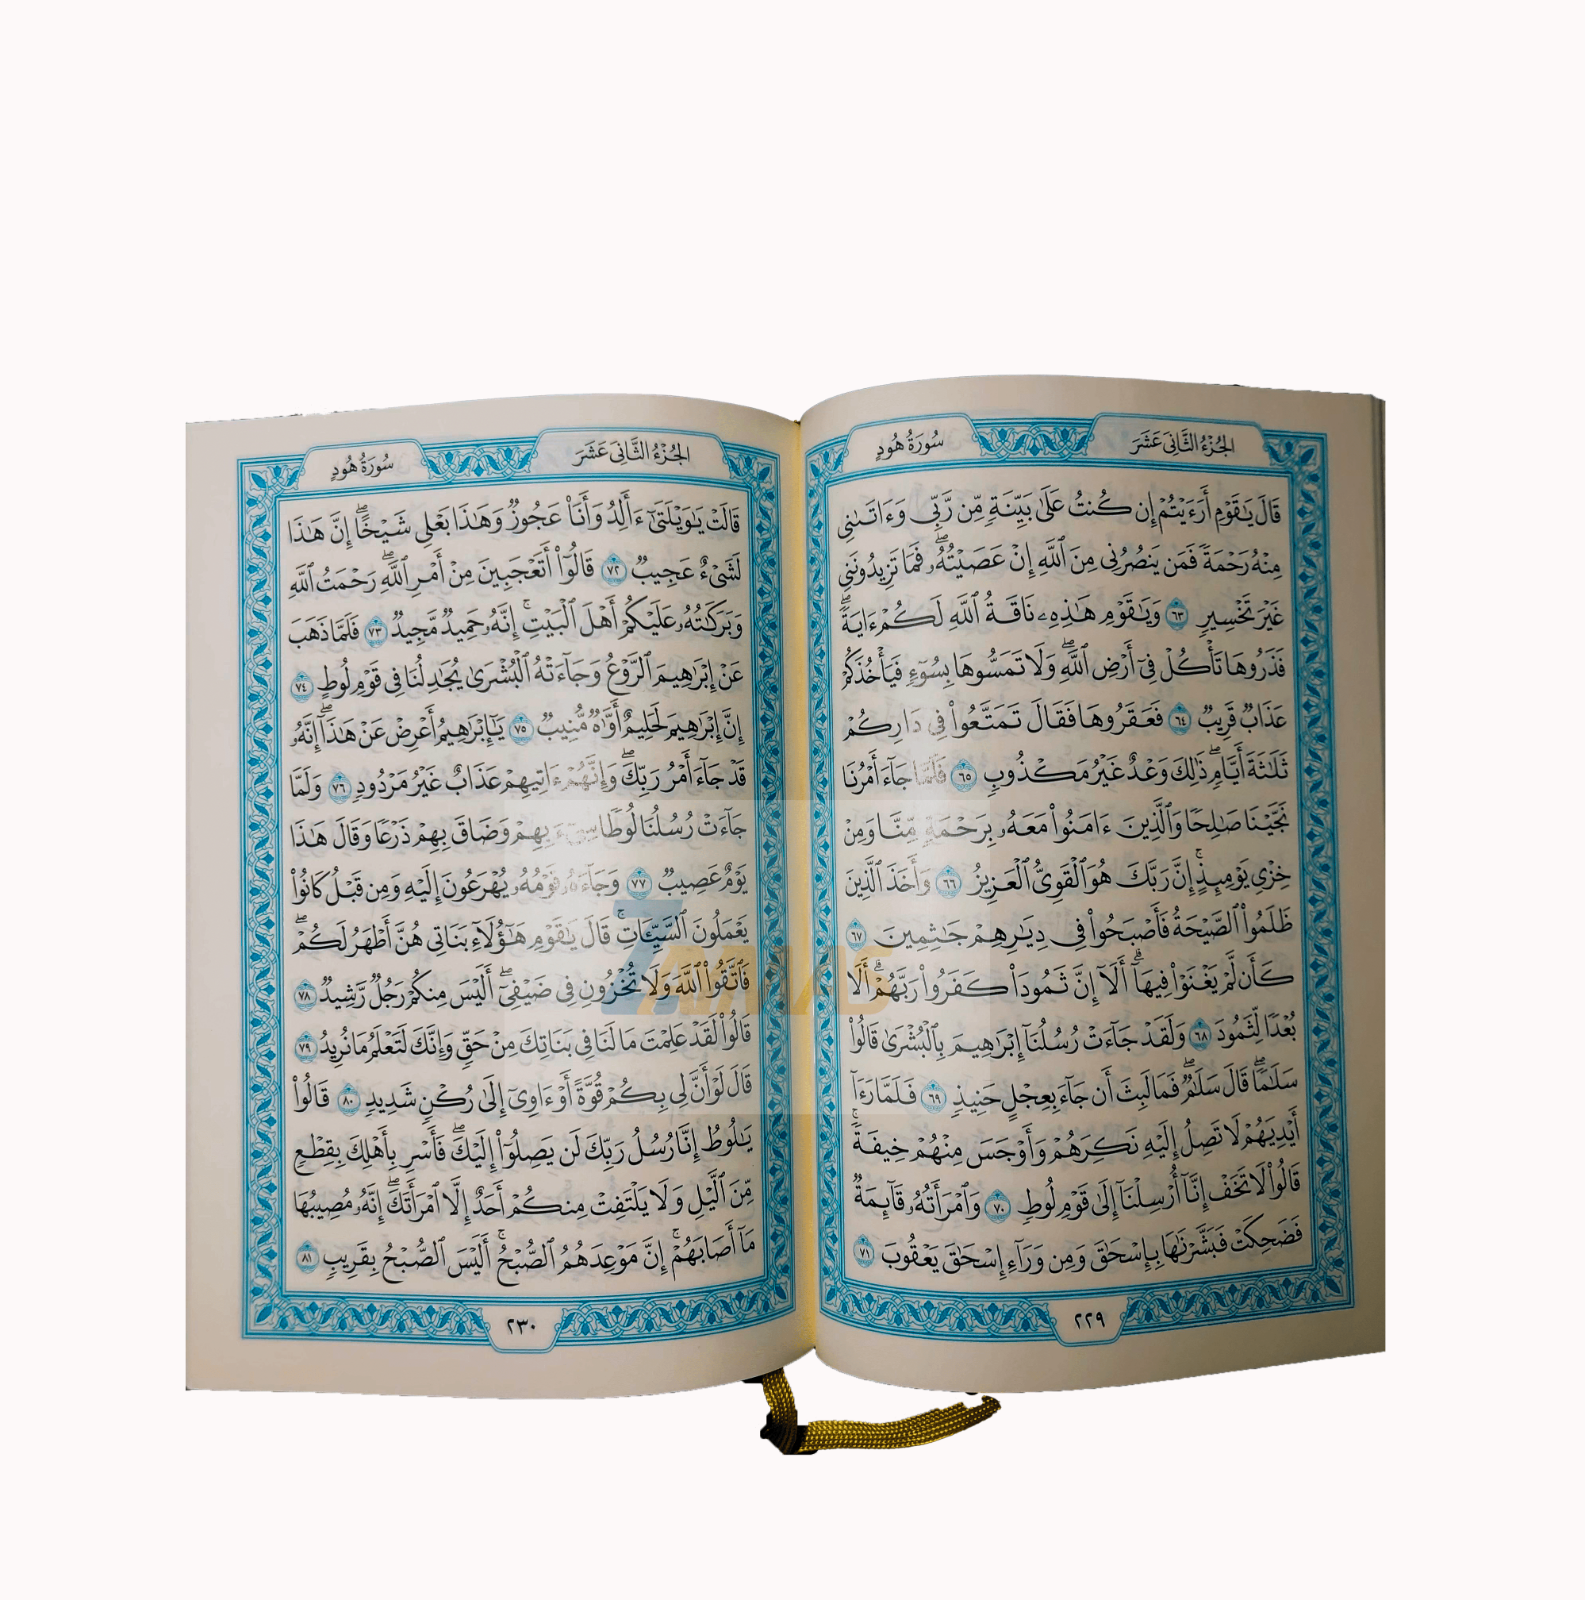 الجُزْءُ الثَّانِيَ عَشَرَ
سُورَةُ هُودٍ
قَالَ يَٰقَوْمِ أَرَءَيْتُمْ إِن كُنتُ عَلَىٰ بَيِّنَةٍ مِّن رَّبِّى وَءَاتَىٰنِى
مِنْهُ رَحْمَةً فَمَن يَنصُرُنِى مِنَ ٱللَّهِ إِنْ عَصَيْتُهُۥۖ فَمَا تَزِيدُونَنِى
غَيْرَ تَخْسِيرٍ ٦٣ وَيَٰقَوْمِ هَٰذِهِۦ نَاقَةُ ٱللَّهِ لَكُمْ ءَايَةًۖ
فَذَرُوهَا تَأْكُلْ فِىٓ أَرْضِ ٱللَّهِۖ وَلَا تَمَسُّوهَا بِسُوٓءٍ فَيَأْخُذَكُمْ
عَذَابٌ قَرِيبٌ ٦٤ فَعَقَرُوهَا فَقَالَ تَمَتَّعُوا۟ فِى دَارِكُمْ
ثَلَٰثَةَ أَيَّامٍۖ ذَٰلِكَ وَعْدٌ غَيْرُ مَكْذُوبٍ ٦٥ فَلَمَّا جَآءَ أَمْرُنَا
نَجَّيْنَا صَٰلِحًا وَٱلَّذِينَ ءَامَنُوا۟ مَعَهُۥ بِرَحْمَةٍ مِّنَّا وَمِنْ
خِزْىِ يَوْمِئِذٍۚ إِنَّ رَبَّكَ هُوَ ٱلْقَوِىُّ ٱلْعَزِيزُ ٦٦ وَأَخَذَ ٱلَّذِينَ
ظَلَمُوا۟ ٱلصَّيْحَةُ فَأَصْبَحُوا۟ فِى دِيَٰرِهِمْ جَٰثِمِينَ ٦٧
كَأَن لَّمْ يَغْنَوْا۟ فِيهَآۗ أَلَآ إِنَّ ثَمُودَا۟ كَفَرُوا۟ رَبَّهُمْۗ أَلَا
بُعْدًا لِّثَمُودَ ٦٨ وَلَقَدْ جَآءَتْ رُسُلُنَآ إِبْرَٰهِيمَ بِٱلْبُشْرَىٰ قَالُوا۟
سَلَٰمًاۖ قَالَ سَلَٰمٌۖ فَمَا لَبِثَ أَن جَآءَ بِعِجْلٍ حَنِيذٍ ٦٩ فَلَمَّا رَءَآ
أَيْدِيَهُمْ لَا تَصِلُ إِلَيْهِ نَكِرَهُمْ وَأَوْجَسَ مِنْهُمْ خِيفَةًۚ
قَالُوا۟ لَا تَخَفْ إِنَّآ أُرْسِلْنَآ إِلَىٰ قَوْمِ لُوطٍ ٧٠ وَٱمْرَأَتُهُۥ قَآئِمَةٌ
فَضَحِكَتْ فَبَشَّرْنَٰهَا بِإِسْحَٰقَ وَمِن وَرَآءِ إِسْحَٰقَ يَعْقُوبَ ٧١
٢٢٩
الجُزْءُ الثَّانِيَ عَشَرَ
سُورَةُ هُودٍ
قَالَتْ يَٰوَيْلَتَىٰٓ ءَأَلِدُ وَأَنَا۠ عَجُوزٌ وَهَٰذَا بَعْلِى شَيْخًاۖ إِنَّ هَٰذَا
لَشَىْءٌ عَجِيبٌ ٧٢ قَالُوٓا۟ أَتَعْجَبِينَ مِنْ أَمْرِ ٱللَّهِۖ رَحْمَتُ ٱللَّهِ
وَبَرَكَٰتُهُۥ عَلَيْكُمْ أَهْلَ ٱلْبَيْتِۚ إِنَّهُۥ حَمِيدٌ مَّجِيدٌ ٧٣ فَلَمَّا ذَهَبَ
عَنْ إِبْرَٰهِيمَ ٱلرَّوْعُ وَجَآءَتْهُ ٱلْبُشْرَىٰ يُجَٰدِلُنَا فِى قَوْمِ لُوطٍ ٧٤
إِنَّ إِبْرَٰهِيمَ لَحَلِيمٌ أَوَّٰهٌ مُّنِيبٌ ٧٥ يَٰٓإِبْرَٰهِيمُ أَعْرِضْ عَنْ هَٰذَآۖ إِنَّهُۥ
قَدْ جَآءَ أَمْرُ رَبِّكَۖ وَإِنَّهُمْ ءَاتِيهِمْ عَذَابٌ غَيْرُ مَرْدُودٍ ٧٦ وَلَمَّا
جَآءَتْ رُسُلُنَا لُوطًا سِىٓءَ بِهِمْ وَضَاقَ بِهِمْ ذَرْعًا وَقَالَ هَٰذَا
يَوْمٌ عَصِيبٌ ٧٧ وَجَآءَهُۥ قَوْمُهُۥ يُهْرَعُونَ إِلَيْهِ وَمِن قَبْلُ كَانُوا۟
يَعْمَلُونَ ٱلسَّيِّـَٔاتِۚ قَالَ يَٰقَوْمِ هَٰٓؤُلَآءِ بَنَاتِى هُنَّ أَطْهَرُ لَكُمْۖ
فَٱتَّقُوا۟ ٱللَّهَ وَلَا تُخْزُونِ فِى ضَيْفِىٓۖ أَلَيْسَ مِنكُمْ رَجُلٌ رَّشِيدٌ ٧٨
قَالُوا۟ لَقَدْ عَلِمْتَ مَا لَنَا فِى بَنَاتِكَ مِنْ حَقٍّ وَإِنَّكَ لَتَعْلَمُ مَا نُرِيدُ ٧٩
قَالَ لَوْ أَنَّ لِى بِكُمْ قُوَّةً أَوْ ءَاوِىٓ إِلَىٰ رُكْنٍ شَدِيدٍ ٨٠ قَالُوا۟
يَٰلُوطُ إِنَّا رُسُلُ رَبِّكَ لَن يَصِلُوٓا۟ إِلَيْكَۖ فَأَسْرِ بِأَهْلِكَ بِقِطْعٍ
مِّنَ ٱلَّيْلِ وَلَا يَلْتَفِتْ مِنكُمْ أَحَدٌ إِلَّا ٱمْرَأَتَكَۖ إِنَّهُۥ مُصِيبُهَا
مَآ أَصَابَهُمْۚ إِنَّ مَوْعِدَهُمُ ٱلصُّبْحُۚ أَلَيْسَ ٱلصُّبْحُ بِقَرِيبٍ ٨١
٢٣٠